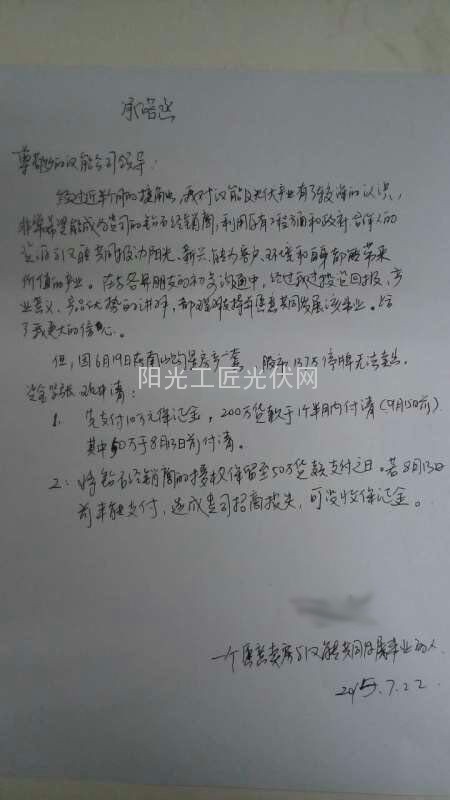 承诺书
尊敬的汉能公司领导：
经过近半个月的接触，我对汉能及光伏事业有了较深的认识，
非常希望能成为贵公司的钻石经销商，利用已有工程方面和政府合作人的
资源与汉能共同推动阳光、新兴、能为客户、环境和自身都能带来
价值的事业。在与各界朋友的初步沟通中，经过我过投资回报，产
业意义、产品优势的讲解，都愿意共同发展该事业。给
了我更大的信心。
但，因6月19日在南山购是房产一套，股市137万停牌无法卖出。
资金紧张
阳光工匠光伏网
1. 先支付10万元保证金，200万货款于1个半月内付清（9月15日前）
其中50万于8月13日前付清。
2. 将钻石经销商的授权保留至50万货款支付之日。若8月13日
前未能支付，造成贵司招商损失，可没收保证金。
一个愿意卖房与汉能共同发展事业的人
2015.7.22